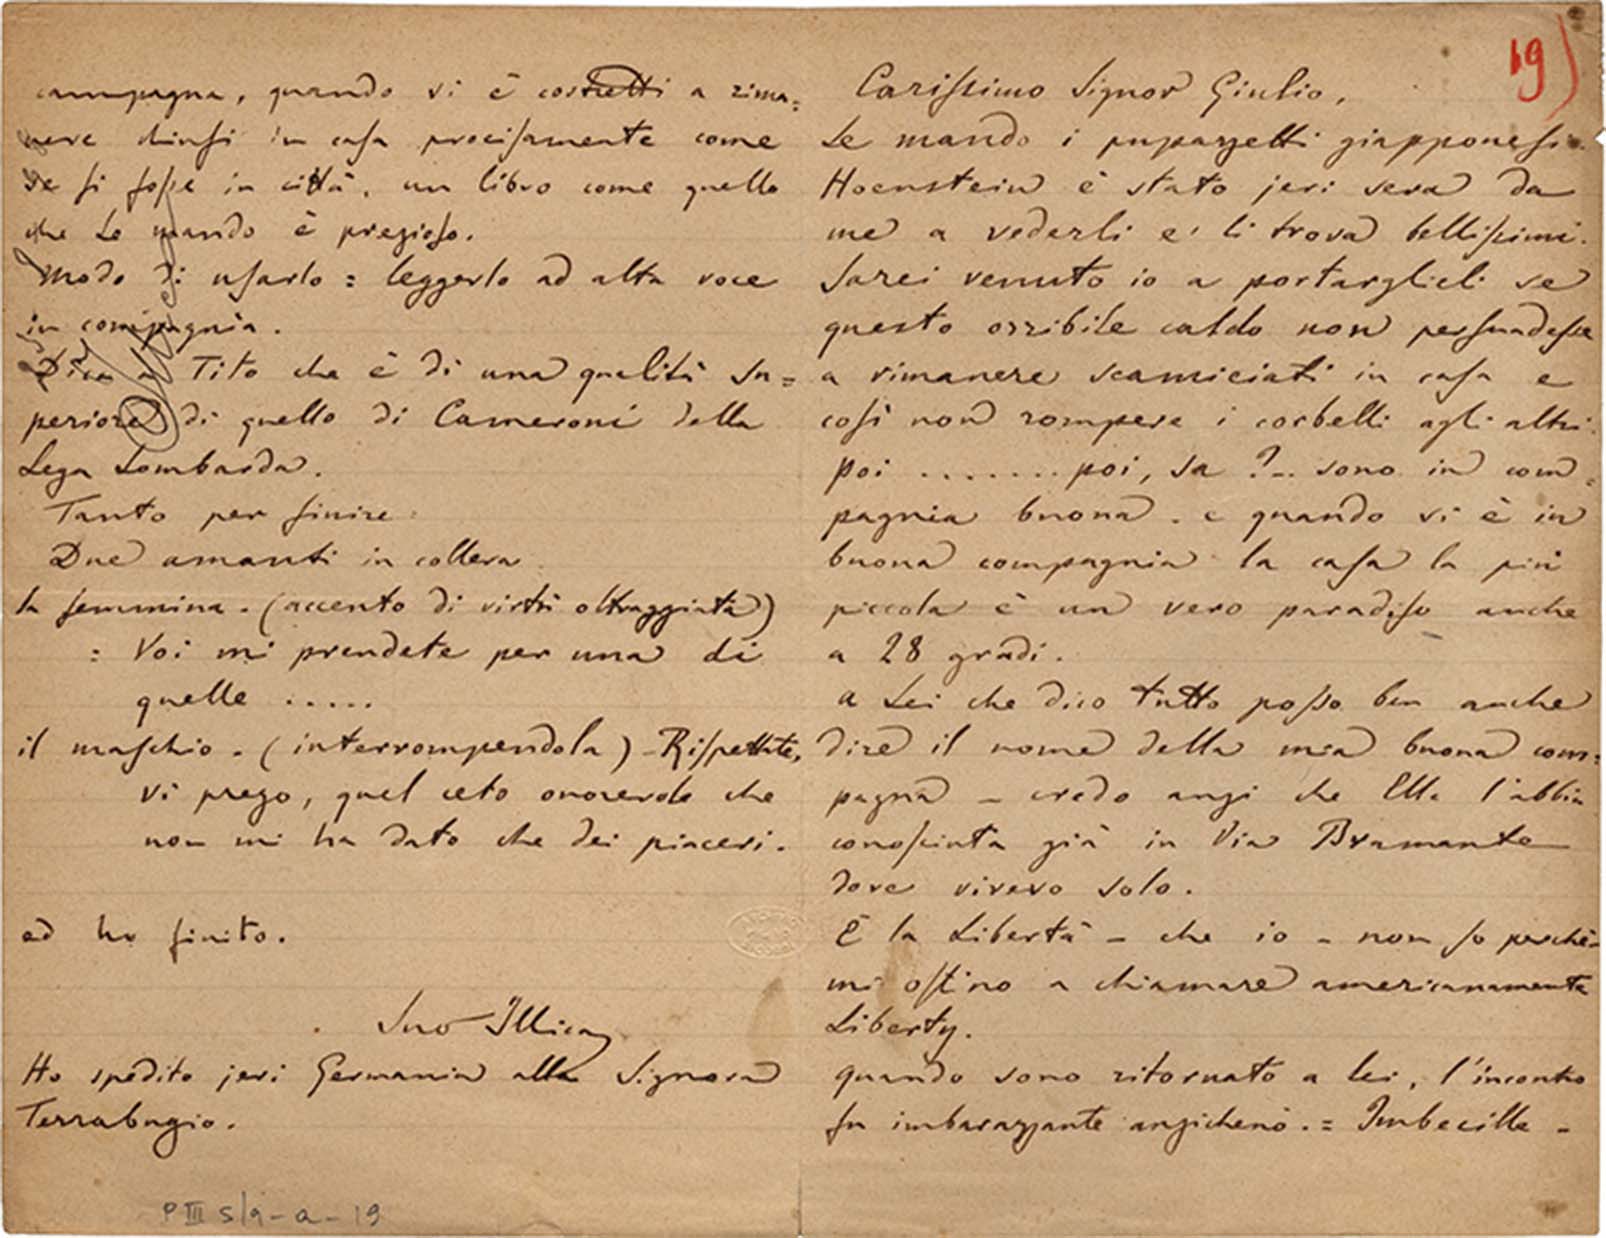 19)
Carissimo Signor Giulio,
Le mando i pupazzetti giapponesi.
Hoenstein è stato jeri sera da
me a vederli e li trova bellissimi.
Sarei venuto io a portarglieli se
questo orribile caldo non persuadesse
a rimanere scamiciati in casa e
così non rompere i corbelli agli altri.
Poi ........ poi, sa ?.. sono in com=
pagnia buona. e quando vi è in
buona compagnia la casa la più
piccola è un vero paradiso anche
a 28 gradi.
A Lei che dico tutto posso ben anche
dire il nome della mia buona com=
pagna – credo anzi che Ella l'abbia
conosciuta già in Via Bramante
dove vivevo solo.
È la Libertà – che io – non so perchè –
mi ostino a chiamare americanamente
Liberty.
Quando sono ritornato a lei, l'incontro
fu imbarazzante anzichenò. = Imbecille –
campagna, quando vi è costretti a rima=
nere chiusi in casa precisamente come
se si fosse in città, un libro come quello
che Le mando è prezioso.
Modo di usarlo = leggerlo ad alta voce
in compagnia.
Dica a Tito che è di una qualità su=
periore di quello di Cameroni della
Lega Lombarda.
Tanto per finire:
Due amanti in collera.
la femmina – (accento di virtù oltraggiata)
= Voi mi prendete per una di
quelle .....
il maschio – (interrompendola) – Rispettate,
vi prego, quel ceto onorevole che
non mi ha dato che dei piaceri.
ed ho finito.
Suo Illica
Ho spedito jeri Germania alla Signora
Terrabugio.
P III S/9 - a - 19